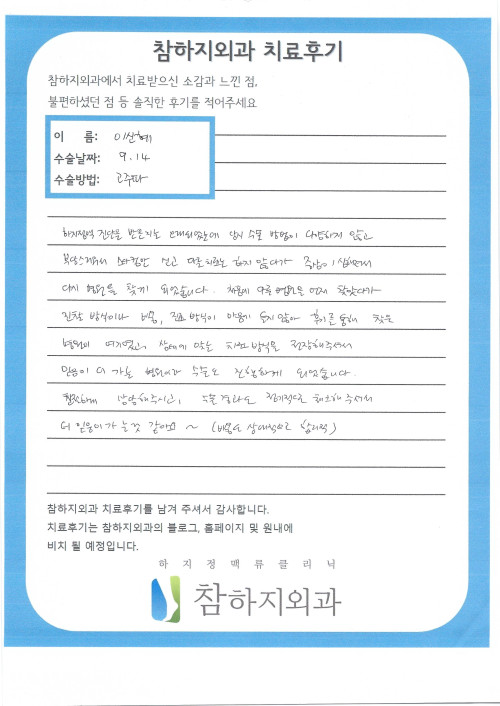 참하지외과 치료후기
참하지외과에서 치료받으신 소감과 느낀 점,
불편하셨던 점 등 솔직한 후기를 적어주세요
이 름: 이산혜
수술날짜: 9.14
수술방법: 고주파
하지정맥 진단을 받은지는 오래되었는데 당시 수술 방법이 다양하지 않고
부담스러워서 스타킹만 신고 다른 치료는 하지 않다가 증상이 심해져서
다시 병원을 찾게 되었습니다. 처음에 다른 병원을 먼저 찾았다가
진찰 방식이나 비용, 진료 방식이 마음에 들지 않아 후기를 통해 찾은
병원이 여기였고, 상태에 맞는 치료 방식을 권장해주셔서
믿음이 더 가는 병원이라 수술도 진행하게 되었습니다.
친절하게 상담해주시고, 수술결과도 정기적으로 체크해주셔서
더 믿음이 가는 것 같아요 ~ (비용도 상대적으로 합리적)
참하지외과 치료후기를 남겨 주셔서 감사합니다.
치료후기는 참하지외과의 블로그, 홈페이지 및 원내에
비치 될 예정입니다.
하지정맥류클리닉
참하지외과